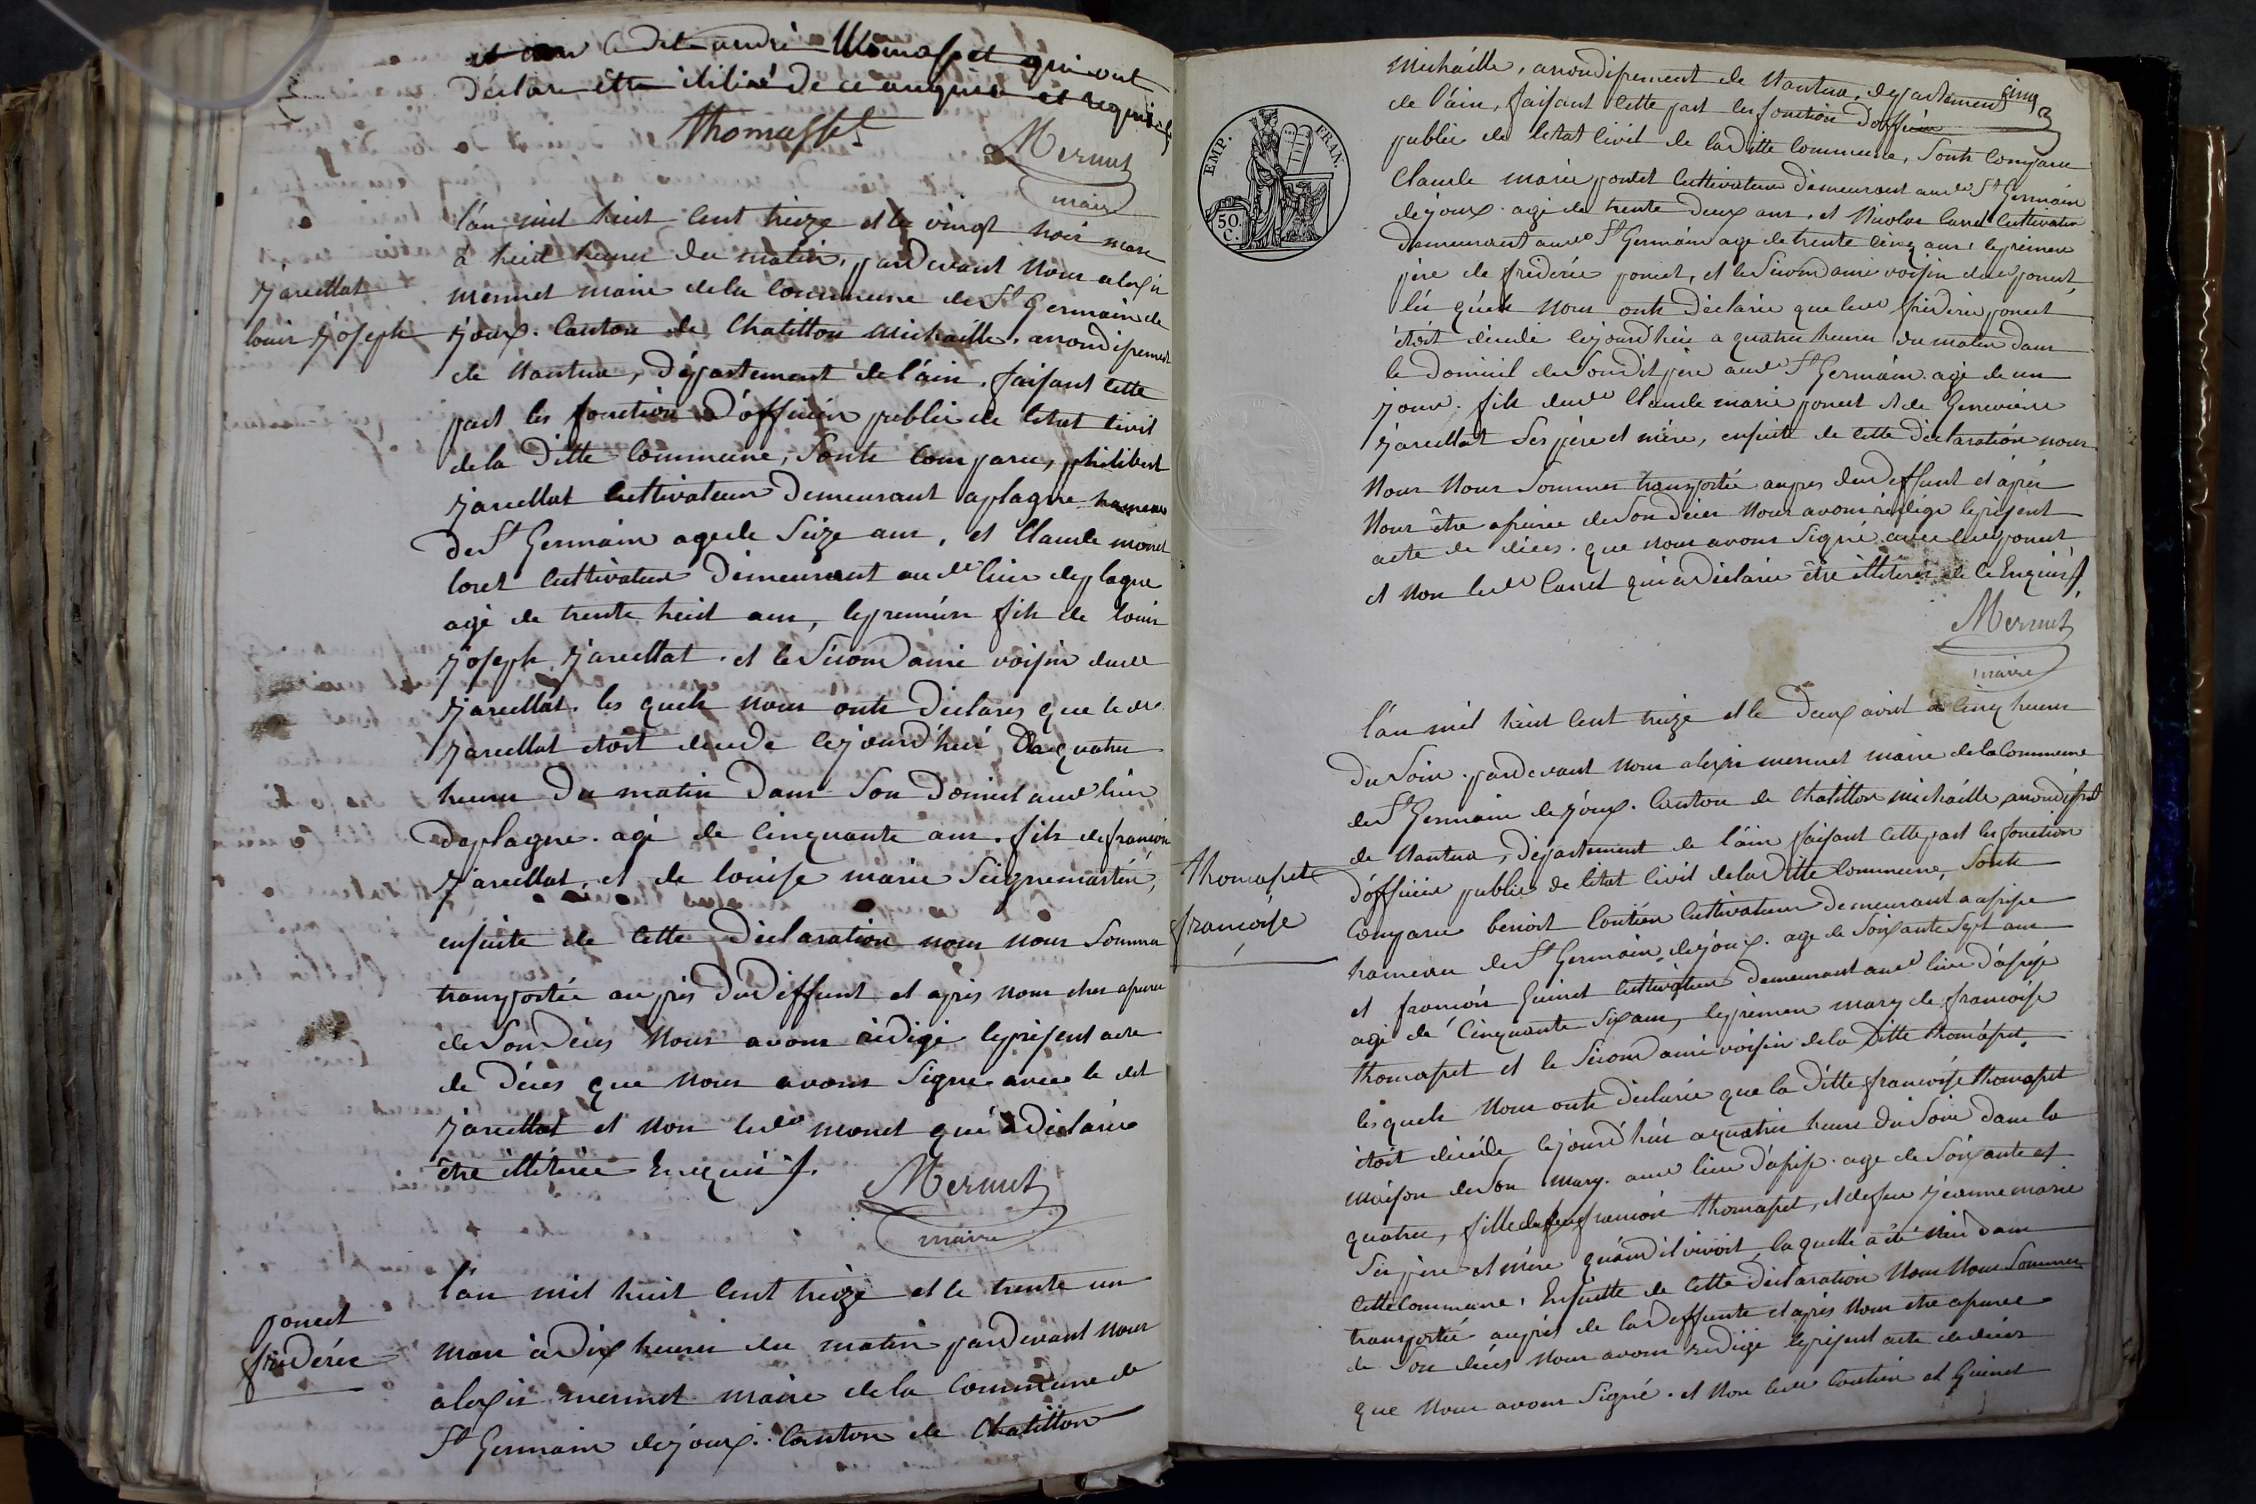 et non le dit andré thomasset qui ont
déclaré être iliteré de ce enquis et requis
thomasset
Mermet
maire
l'an mil huit cent treize et le vingt mars
à huit heures du matin, pardevant nous alexis
jarcellat
mermet maire de la commune de St Germain de
louis joseph
joux. Canton de Chatillon michaille, arrondissement
de Nantua, département de l'ain, faisant cette
part les fonction d'officier public de l'etat civil
de la ditte commune, sonts comparu, philibert
jarcellat cultivateur demeurant a plagne hameau
de St Germain age de seize ans, et Claude monet
loret cultivateur demeurant au dt lieu de plagne
agé de trente huit ans, le premier fils de louis
joseph jarcellat. et le second ami voisin dudt
jarcellat. les quels nous onts déclarés que le dt
jarcellat etoit decede cejourd'hui a quatre
heures du matin dans son domicil audt lieu
de plagne. agé de cinquante ans. fils de francois
jarcellat, et de louise marie Seignemartin,
ensuite de cette declaration nous nous sommes
transportée auprès du deffunt et après nous etre assuré
de son décès nous avons rédigé le présent acte
de décès que nous avons signé avec le dit
jarcellat et non le dt monet qui a déclaré
être illiterée Enquis.
Mermet
maire
l'an mil huit cent treize et le trente un
poncet
fréderic
mars à dix heures du matin pardevant nous
alexis mermet maire de la commune de
St Germain de joux. Canton de Chatillon
michaille, arrondissement de Nantua, departement
cinq
de l'ain, faisant cette part les fonction d'officier
public de letat civil de la ditte commune, sonts comparu
EMP. FRAN.
50 C.
Claude marie poncet cultivateur demeurant audt St Germain
de joux. agé de trente deux ans, et Nicolas Carrel cultivateur
demeurant audt St Germain age de trente cinq ans, le premier
père de fréderic poncet, et le second ami voisin dudt poncet,
lés quels nous onts déclarée que ledt fréderic poncet
étoit décédé cejourd'hui a quatre heures du matin dans
le domicil de son dit père audt St Germain. agé de un
jour. fils dudt Claude marie poncet et de Genevieve
jarcellat ses père et mère, ensuite de cette déclaration nous
nous nous sommes transportée aupres du deffunt et après
nous être assuree de son décès nous avons rédigé le présent
acte de décès. que nous avons signé avec ledt poncet
et non ledt Carrel qui a déclarée être illiteré de ce Enquis.
Mermet
maire
l'an mil huit cent treize et le deux avril à cinq heures
du soir. pardevant nous alexis mermet maire de la commune
de St Germain de joux. Canton de Chatillon michaille arrondisst
de Nantua, département de l'ain faisant cette part les fonction
thomasset
d'officier public de létat civil de la ditte commune, sonts
francoise
comparu benoit Coutier cultivateur demeurant a
hameau de St Germain de joux. age de soixante sept ans
et francois Guinet cultivateur demeurant audt lieu
agé de cinquante six ans, le premier mary de francoise
thomasset et le second ami voisin de la ditte thomasset.
les quels nous onts déclarée que la ditte francoise thomasset
étoit décédée cejourd'hui a quatre heures du soir dans la
maison de son mary. audt lieu age de soixante et
quatre, fille de feu francois thomasset, et de feu jeanne marie
ses père et mère quand il vivoit, la quelle a été née dans
cette commune. Ensuitte de cette déclaration nous nous sommes
transportée auprès de la deffunte et après nous etre assuree
de son décès nous avons redigé le présent acte de décès
que nous avons signé. et non ledt Coutier et Guinet